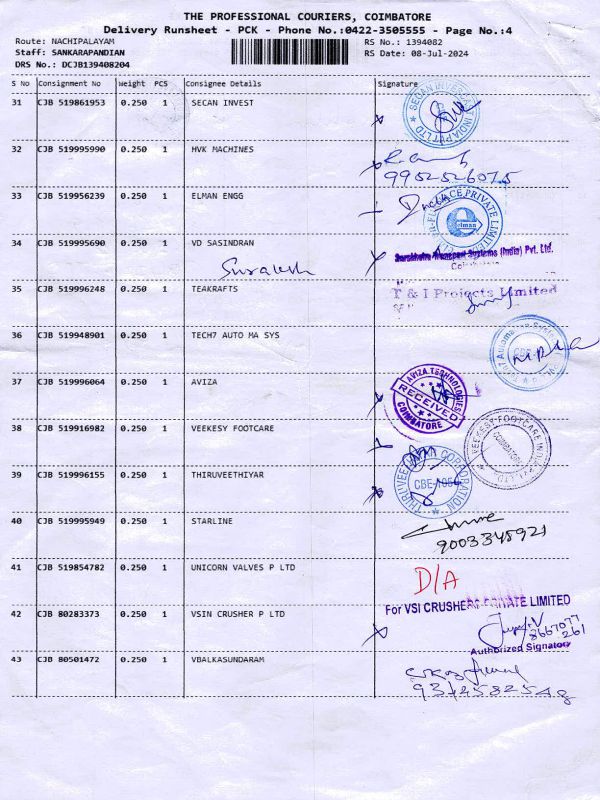 THE PROFESSIONAL COURIERS, COIMBATORE
Delivery Runsheet - PCK - Phone No.:0422-3505555 - Page No.:4
Route: NACHIPALAYAM RS No.: 1394082
Staff: SANKARAPANDIAN RS Date: 08-Jul-2024
DRS No.: DCJB139408204
S No Consignment No Weight PCS Consignee Details Signature
31 CJB 519861953 0.250 1 SECAN INVEST
SECAN INVESCAST INDIA PVT LTD
32 CJB 519995990 0.250 1 HVK MACHINES
9952526075
33 CJB 519956239 0.250 1 ELMAN ENGG
PRIVATE LIMITED
elman
34 CJB 519995690 0.250 1 VD SASINDRAN
Systems (India) Pvt. Ltd.
Suralesh
35 CJB 519996248 0.250 1 TEAKRAFTS
T & I Projects Limited
36 CJB 519948901 0.250 1 TECH7 AUTO MA SYS
CBE
37 CJB 519996064 0.250 1 AVIZA
AVIZA TECHNOLOGIES
RECEIVED
COIMBATORE
38 CJB 519916982 0.250 1 VEEKESY FOOTCARE
VEEKESY FOOTCARE INDIA PVT LTD
COIMBATORE
39 CJB 519996155 0.250 1 THIRUVEETHIYAR
CORPORATION
CBE-105
40 CJB 519995949 0.250 1 STARLINE
9003348921
41 CJB 519854782 0.250 1 UNICORN VALVES P LTD
D/A
For VSI CRUSHERS PRIVATE LIMITED
42 CJB 80283373 0.250 1 VSIN CRUSHER P LTD
8667077
261
Authorized Signatory
43 CJB 80501472 0.250 1 VBALKASUNDARAM